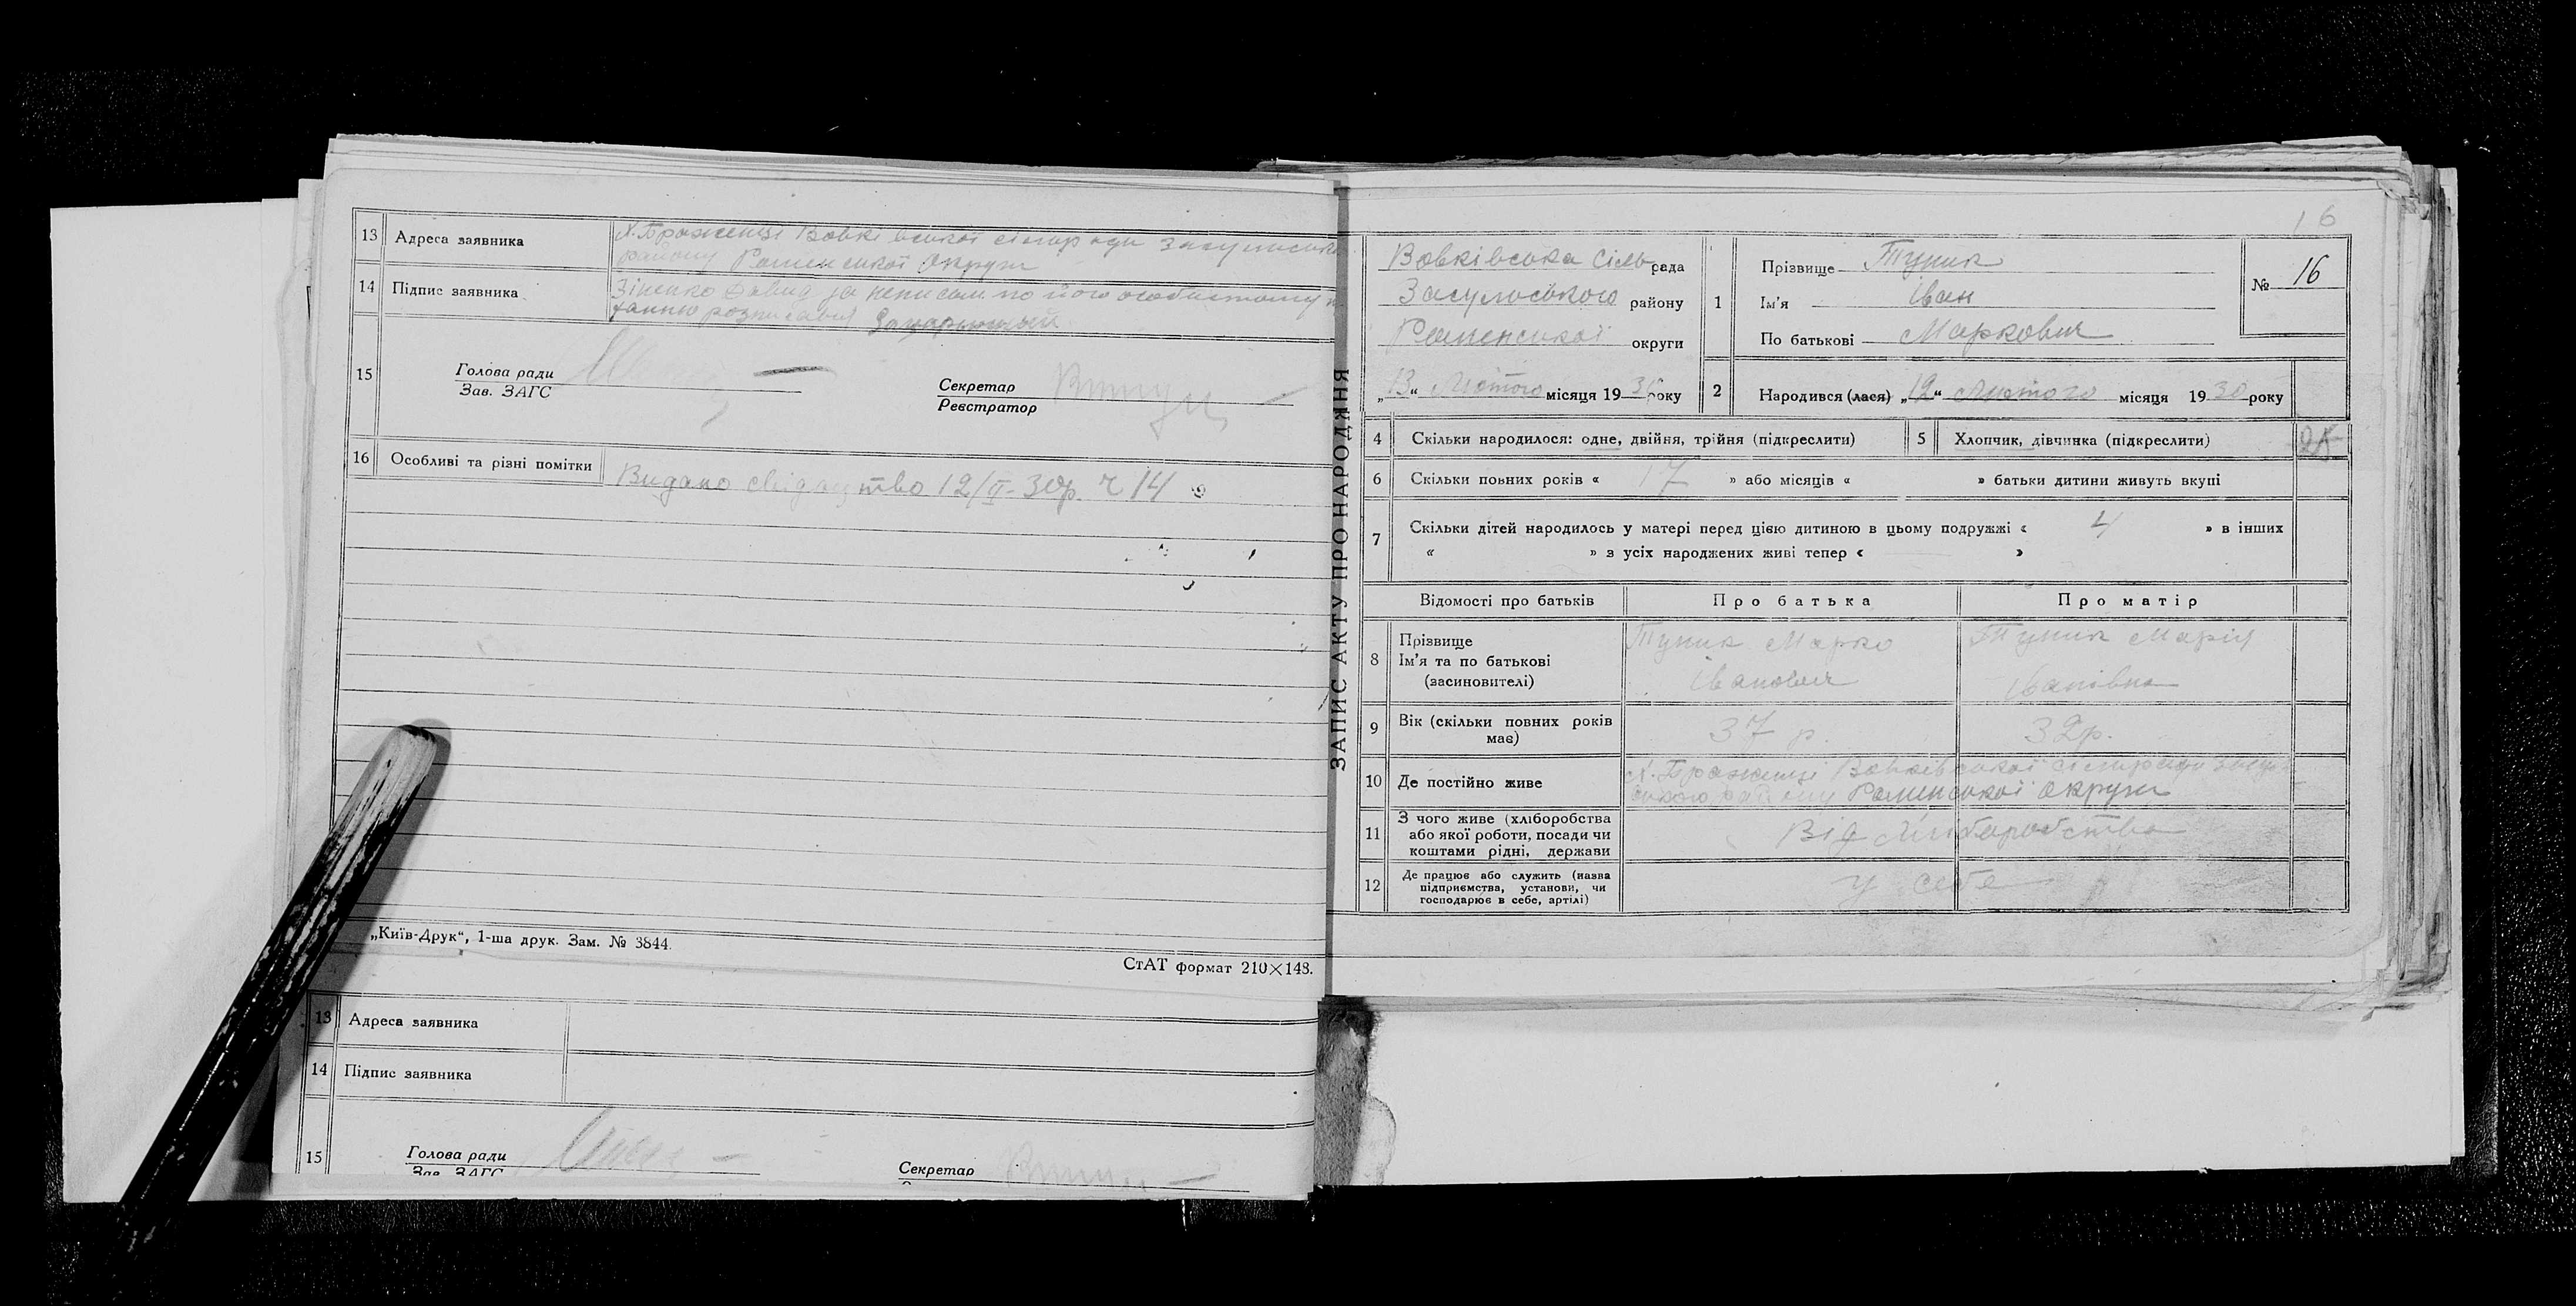 13 Адреса заявника х. Браженці Вовківської сільради Засульсько
району Роменської Округи
14 Підпис заявника Зіненко Давид за неписьм. по його особистому
розписався
15 Голова ради
Зав. ЗАГС
Секретар
Реєстратор
16 Особливі та різні помітки Видано свідоцтво 12/II-30р. ч 14
„Київ-Друк“, 1-ша друк. Зам. № 3844.
СтАТ формат 210×148.
13 Адреса заявника
14 Підпис заявника
15 Голова ради
Зав. ЗАГС
Секретар
ЗАПИС АКТУ ПРО НАРОДЖНЯ
16
Вовківська Сільрада
Засульського району
Роменської округи
„13“ Лютого місяця 1930 року
1 Прізвище Тупик
Ім'я Іван
По батькові Маркович
№ 16
2 Народився (лася) „12“ Лютого місяця 1930 року
4 Скільки народилося: одне, двійня, трійня (підкреслити)
5 Хлопчик, дівчинка (підкреслити)
6 Скільки повних років « 17 » або місяців « » батьки дитини живуть вкупі
7 Скільки дітей народилось у матері перед цією дитиною в цьому подружжі « 4 » в інших
« » з усіх народжених живі тепер « »
Відомості про батьків Про батька Про матір
8 Прізвище
Ім'я та по батькові
(засиновителі)
Тупик Марко
Іванович
Тупик Марія
Іванівна
9 Вік (скільки повних років
має)
37 р. 32р.
10 Де постійно живе х. Браженці Вовківської сільради Засуль
ського району Роменської Округи
11 З чого живе (хліборобства
або якої роботи, посади чи
коштами рідні, держави
Від хліборобства
12 Де працює або служить (назва
підприємства, установи, чи
господарює в себе, артілі)
у себе